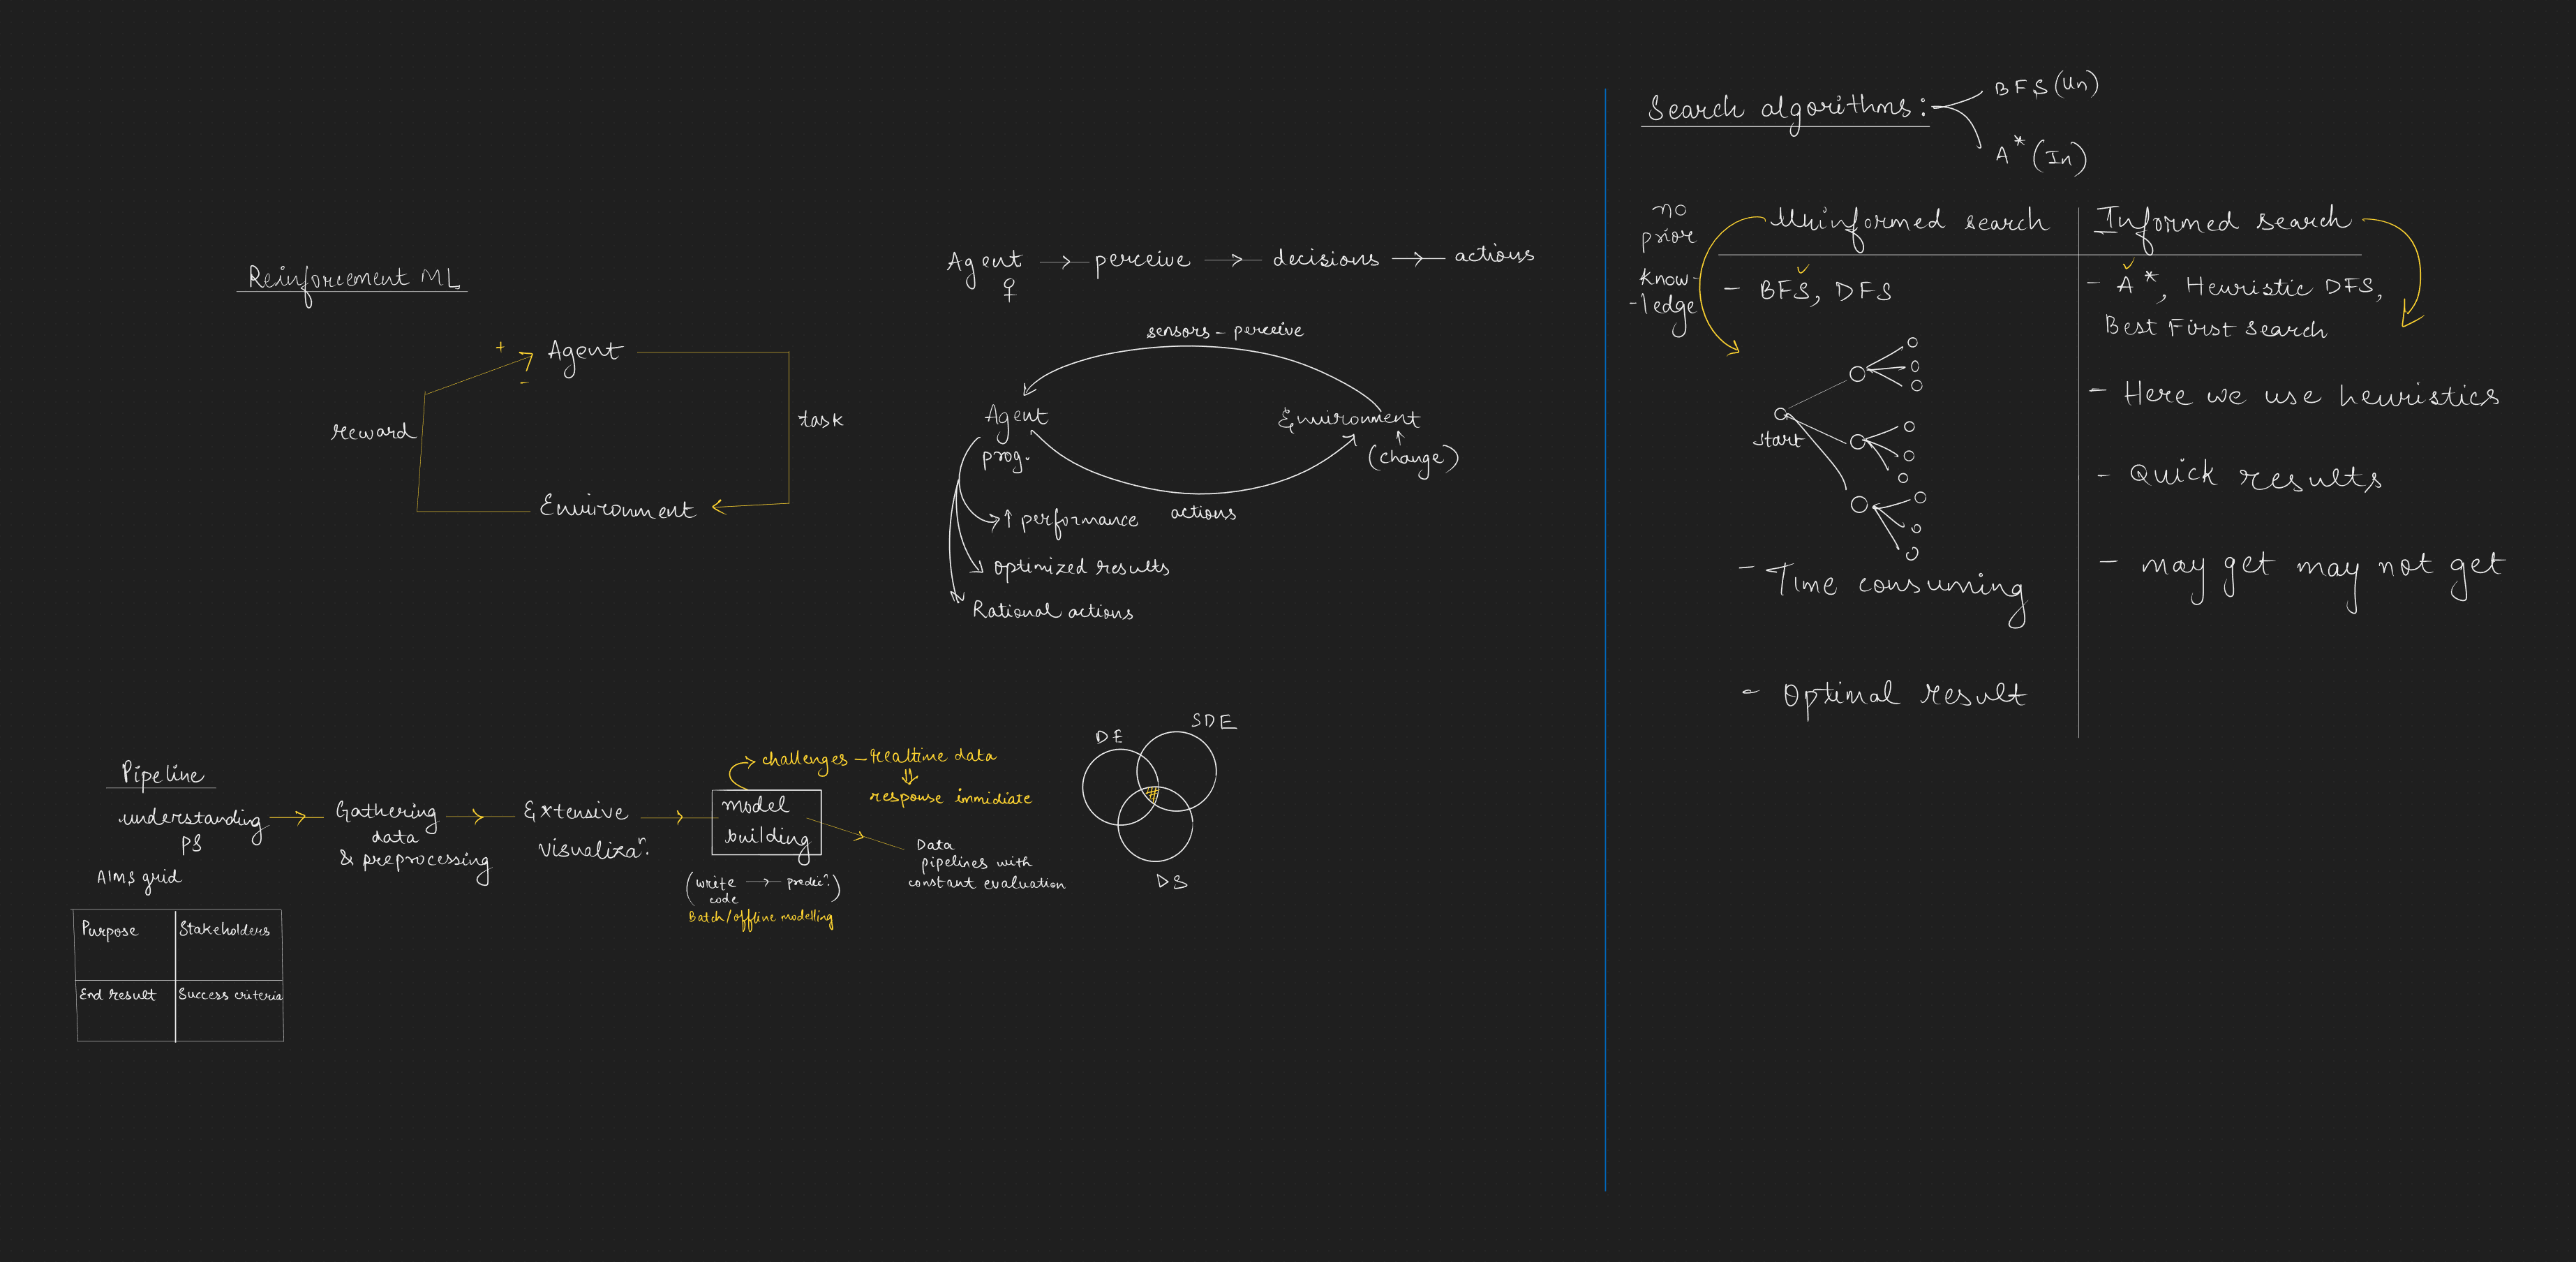 Reinforcement ML
+
Agent
-
reward
task
Environment
Agent → perceive → decisions → actions
sensors - perceive
Agent
prog.
Environment
(change)
actions
↑ performance
optimized results
Rational actions
Pipeline
understanding
PS
Gathering
data
& preprocessing
Extensive
visualizaⁿ.
model
building
challenges - Realtime data
⇓
response immidiate
(write → predicⁿ.)
code
Batch/offline modelling
Data
pipelines with
constant evaluation
DE
SDE
DS
AIMS grid
Purpose
Stakeholders
End result
Success criteria
Search algorithms:
BFS (Un)
A* (In)
no
prior
know-
-ledge
Uninformed search
- BFS, DFS
start
- Time consuming
- Optimal result
Informed search
- A*, Heuristic DFS,
Best First Search
- Here we use heuristics
- Quick results
- may get may not get